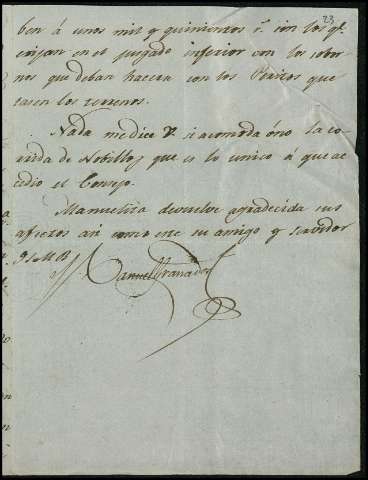 23
ben á unos mil y quinientos r. con los q.
exijan en el juzgado inferior con los sobor
nos que deban hacerse con los Peritos que
tasen los terrenos.
Nada me dice V. si acomoda ó no la co
rrida de Nobillos, que es lo unico á que ac
cedio el Consejo.
Manuelita devuelve agradecida sus
afectos asi como este su amigo y servidor
q S M B
Manuel Granados